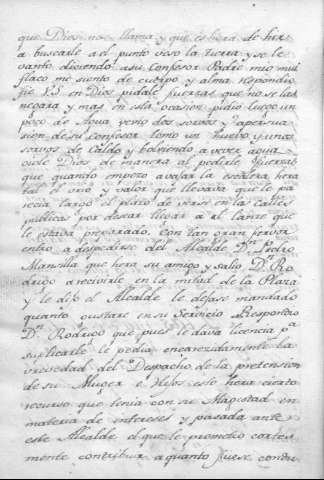 que Dios nos llama y que es hora de hir
a buscarle a el punto veso la tierra y se le
vanto diciendo asu confesor Padre mio mui
flaco me siento de cuerpo y alma respondio
fie VS en Dios pidale fuerzas que no se las
negara y mas en esta ocasion pidio luego un
poco de Agua verio dos sorvos y apersua
sion de su confesor tomo un huebo y unos
sorvos de caldo y bolviendo a vever agua
oiole Dios de manera al pedirle fuerzas
que quando empezo avajar la escalera hera
tal el brio y valor que llevaba que le pa
recia largo el plazo de verse en las calles
publicas por desear llegar a el lanze que
le estava preparado. Con tan gran fervor
entro a despedirse del Alcalde Dn. Pedro
Mansilla que hera su amigo y salio Dn. Ro
drigo a recivirle en la mitad de la Plaza
y le dijo el Alcalde le dejase mandado
quanto gustare en su Servicio Respondio
Dn. Rodrigo que pues le dava licencia pa
suplicarle le pedia encarezidamente la
brevedad del Despacho de la pretension
de su Muger e Hijos esto hera cierto
recurso que tenia con su Magestad en
materia de intereses y pasada ante
este Alcalde el que le prometio cortes
mente contribuir a quanto fuese condu